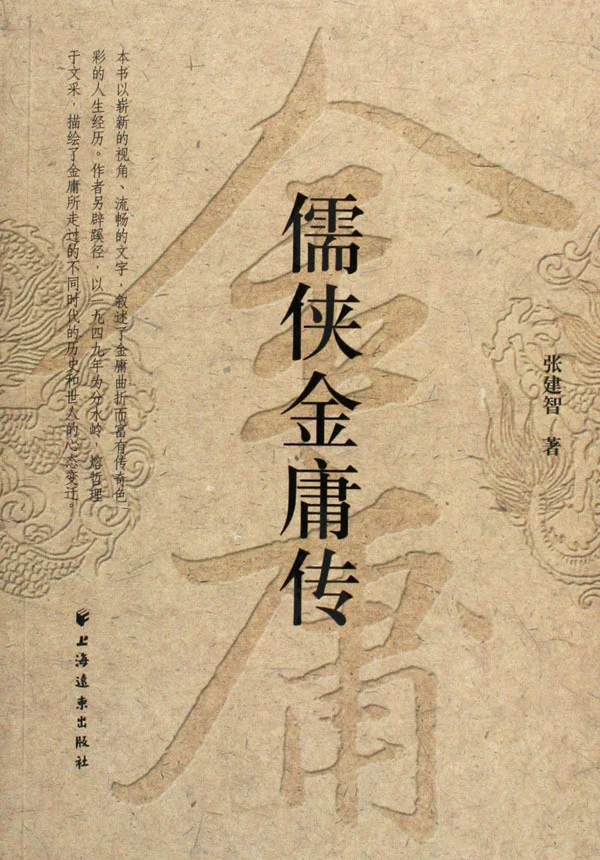 金庸
儒侠金庸传
张建智 著
本书以崭新的视角、流畅的文字，叙述了金庸曲折而富有传奇色
彩的人生经历。作者另辟蹊径，以一九四九年为分水岭，熔哲理
于文采，描绘了金庸所走过的不同时代的历史和世人的心态变迁。
上海远东出版社